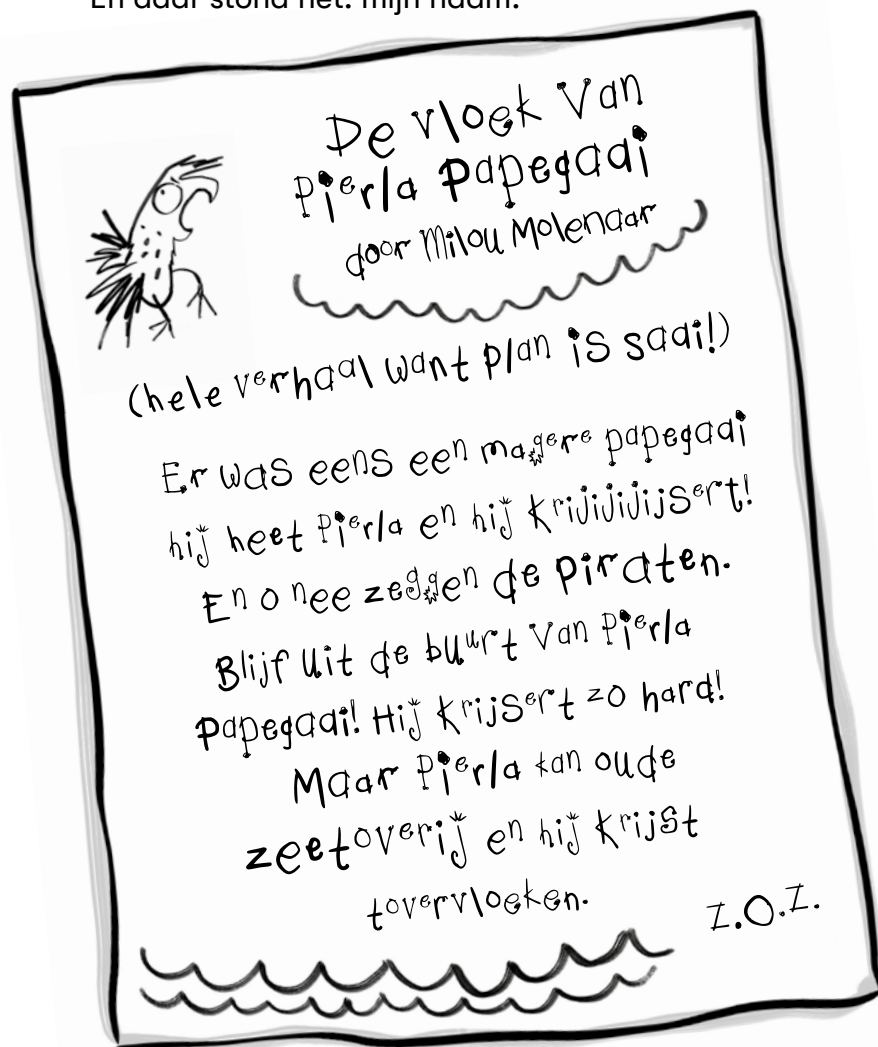 En daar stond het: mijn naam.
De vloek Van
Pierla Papegaai
door Milou Molenaar
(hele verhaal want plan is saai!)
Er was eens een magere papegaai
hij heet Pierla en hij krijijijijsert!
En o nee zeggen de piraten.
Blijf uit de buurt van Pierla
Papegaai! Hij krijsert zo hard!
Maar Pierla kan oude
zeetoverij en hij krijst
tovervloeken.
Z.O.Z.